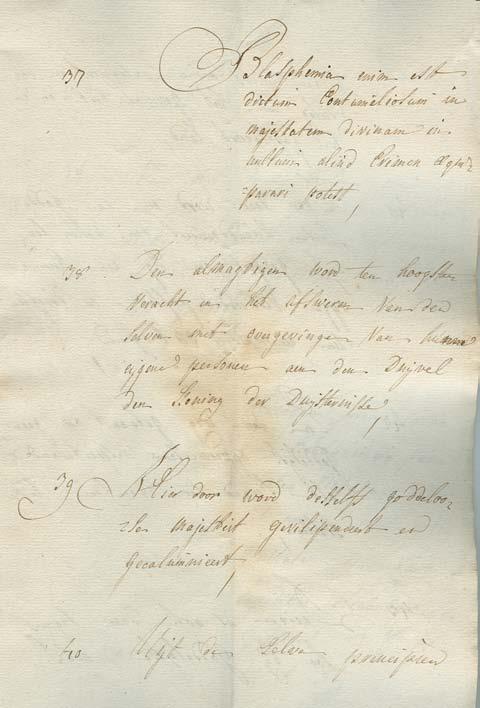 37 Blasphemia enim est
dictum Contumeliosum in
majestatem divinam in
nullum aliud Crimen Æqui=
=parari potest,
38 Den almagtigen word ten hoogsten
veracht in het afsweren van den
selven met overgevinge van hunne
eijgene persoonen aen den Duijvel
den Koning der Duijsternisse,
39 Hier door word desselfs goddeloo-
majesteit gevilipendeert en
gecalumnieert,
40 Uijt de selve principien